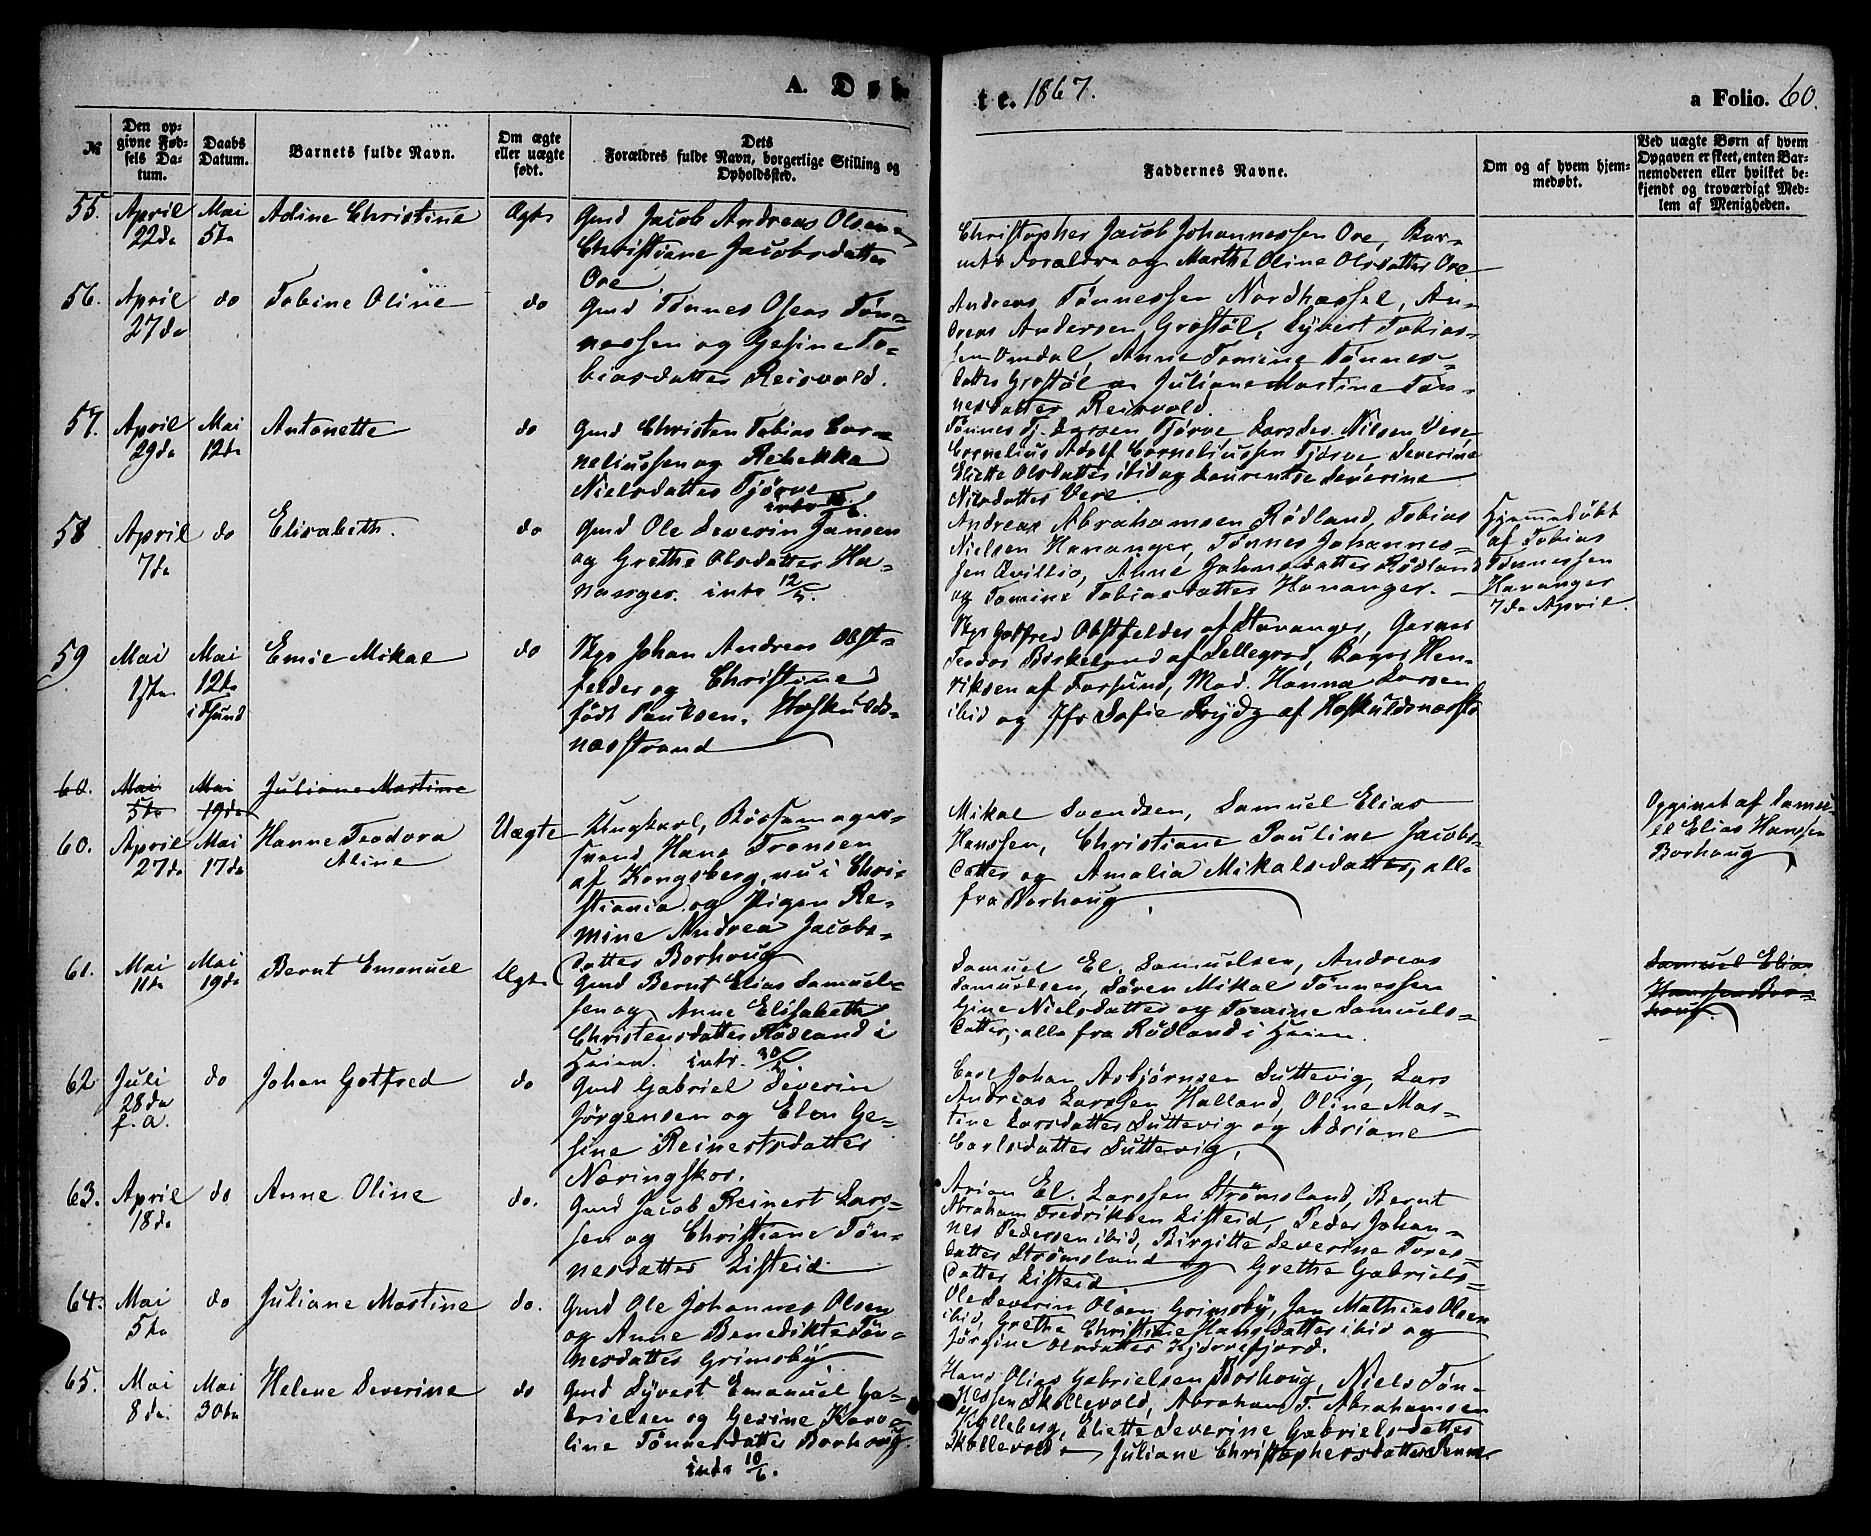 A. Døb
te. 1867.
a Folio. 60.
№
Den opgivne Fødsels Datum.
Daabs Datum.
Barnets fulde Navn.
Om ægte eller uægte født.
Dets Forældres fulde Navn, borgerlige Stilling og Opholdssted.
Faddernes Navne.
Om og af hvem hjemmedøbt.
Ved uægte Børn af hvem Opgaven er skeet, enten Barnemoderen eller hvilket bekjendt og troværdigt Medlem af Menigheden.
55. April 22de Mai 5te Adine Christine Ægte
Gmd Jacob Andreas Olsen
Christiane Jacobsdatter
Ore
Christopher Jacob Johannessen Ore, Bar-
nets Forældre og Marthe Oline Olsdatter Ore
56. April 27de do Tobine Oline do
Gmd Tönnes Oleas Tön-
nessen og Gesine To-
biasdatter Reisvold.
Andreas Tönnessen Nordhassel, An-
dreas Andersen Grostöl, Sÿvert Tobias-
sen Omdal, Anne Tomine Tönnes-
datter Grostöl og Juliane Martine Tön-
nesdatter Reisvold.
57. April 29de Mai 12te Antonette do
Gmd Christen Tobias Cor-
neliussen og Rebekka
Nielsdatter Tjörve
Tönnes Tj. Larsen Tjörve Nilsen Vere,
Cornelius Adolf Corneliussen Tjörve Severine
Eliette Olsdatter ibid og Laurentse Severine
Nilsdatter Vere.
58 April 7de do Elisabeth. do
Gmd Ole Severin Jansen
og Grethe Olsdatter Ha-
nanger. intr 12/5.
Andreas Abrahamsen Rödland, Tobias
Nielsen Hananger, Tönnes Johannes-
sen Qvillio, Anne Jahnsdatter Rödland
og Tomine Tobiasdatter Hananger.
Hjemmedöbt
af Tobias
Tönnessen
Hananger
7de April.
59 Mai 1ste Mai 12te i dsund Emie Mikal do
Skp Johan Andreas Obst-
felder og Christine
födt Paulsen, Höskulds-
næsstrand
Skp Godfred Obstfelder af Stavanger,
Teodor Birkeland af Lellegrod, Hen-
riksen af Farsund, Mad. Hanna Larsen
ibid og Jfr Sofie af
60. Mai 5te Mai 19de Juliane Martine
60. April 27de Mai 17de Hanne Teodora
Aline
Uægte
Ungkarl, Bössemager-
svend Hans Fransen
af Kongsberg, nu i Chri-
stiania og Pigen Re-
mine Andrea Jacobs-
datter Borhoug
Mikal Svendsen, Samuel Elias
Hanssen, Christiane Pauline Jacobs-
datter og Amalia Mikalsdatter, alle
fra Borhoug
Opgivet af Samu-
el Elias Hanssen
Borhoug
61. Mai 11te Mai 19de Bernt Emanuel Ægte
Gmd Bernt Elias Samuel-
sen og Anne Elisabeth
Christensdatter Rödland i
Heien. intr. 30/6.
Samuel El. Samuelsen, Andreas
Samuelsen, Sören Mikal Tönnessen
Gine Nielsdatter og Tomine Samuels-
datter, alle fra Rödland i Heien.
Samuel Elias
Hanssen Bor-
houg
62. Juli 28de f. a. do Johan Gotfred do
Gmd Gabriel Severin
Jörgensen og Elen Ge-
sine Reinertsdatter
Næringskor.
Carl Johan Asbjörnsen Luttevig, Lars
Andreas Larssen Halland, Oline Mar-
tine Larsdatter Luttevig og Adriane
Carlsdatter Luttevig,
63. April 18de do Anne Oline do.
Gmd Jacob Reinert Lars-
sen og Christiane Tön-
nesdatter Listeid
Arian El. Larssen Strömsland, Bernt
Abraham Fredriksen Listeid, Peder Johan-
nes Pedersen ibid, Birgitte Severine Tores-
datter Strömsland og Grethe Gabriels-
datter Listeid
64. Mai 5te do Juliane Martine do.
Gmd Ole Johannes Olsen
og Anne Benedikte Tön-
nesdatter Grimsbÿ.
Ole Severin Olsen Grimsbÿ, Jan Mathias Olsen
ibid, Grethe Christine Hansdatter ibid og
Jörgine Olsdatter Kjörrefjord.
65. Mai 8de Mai 30te Helene Severine do
Gmd Sÿvert Emanuel Ga-
brielsen og Gesine Karo-
line Tönnesdatter Borhoug.
intr 10/6.
Hans Olias Gabrielsen Borhoug, Niels Tön-
nessen Skollevold, Abraham T. Abrahamsen
Hÿlleberg, Eliette Severine Gabrielsdatter
Skollevold og Juliane Christophersdatter